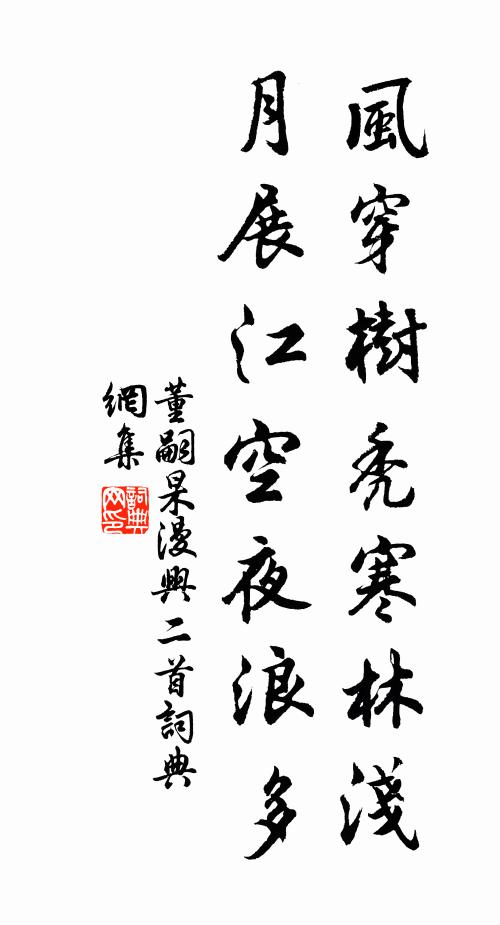 風穿樹禿寒林淺
月展江空夜浪多
董嗣杲漫興二首詞典
網集
詞典
网印